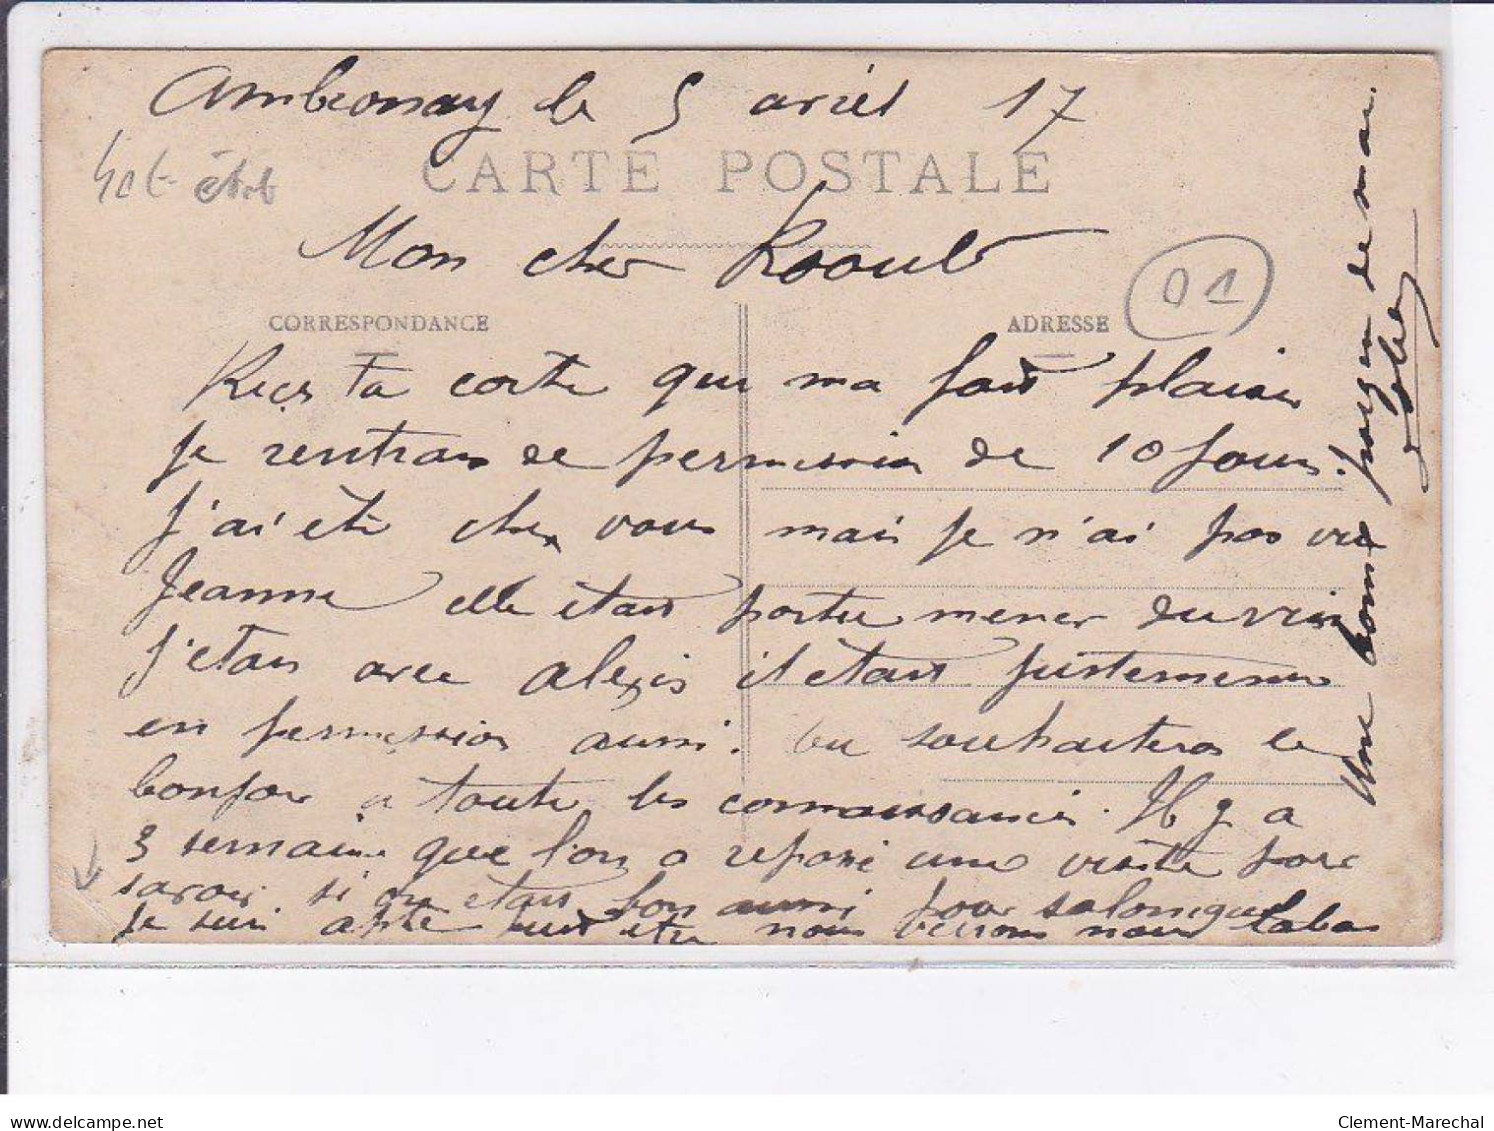 Ambronay le 5 avril 17
CARTE POSTALE
Mon cher Raoul
01
CORRESPONDANCE
ADRESSE
Reçu ta carte qui ma fait plaisir
Je rentrais de permission de 10 Jours.
J'ai été chez vous mais je n'ai pas vu
Jeanne elle étais partu mener du vin
J'étais avec alexis il étais justement
en permession aussi. tu souhaiteras le
bonjour a toute les connaissances. Il y a
3 semaine que l'on a repasé une visite pour
savoir si on étais bon aussi pour salonique
Je suis apte nous verrons nous labas
Une bonne poignée de main.
delcampe.net
Clement-Marechal